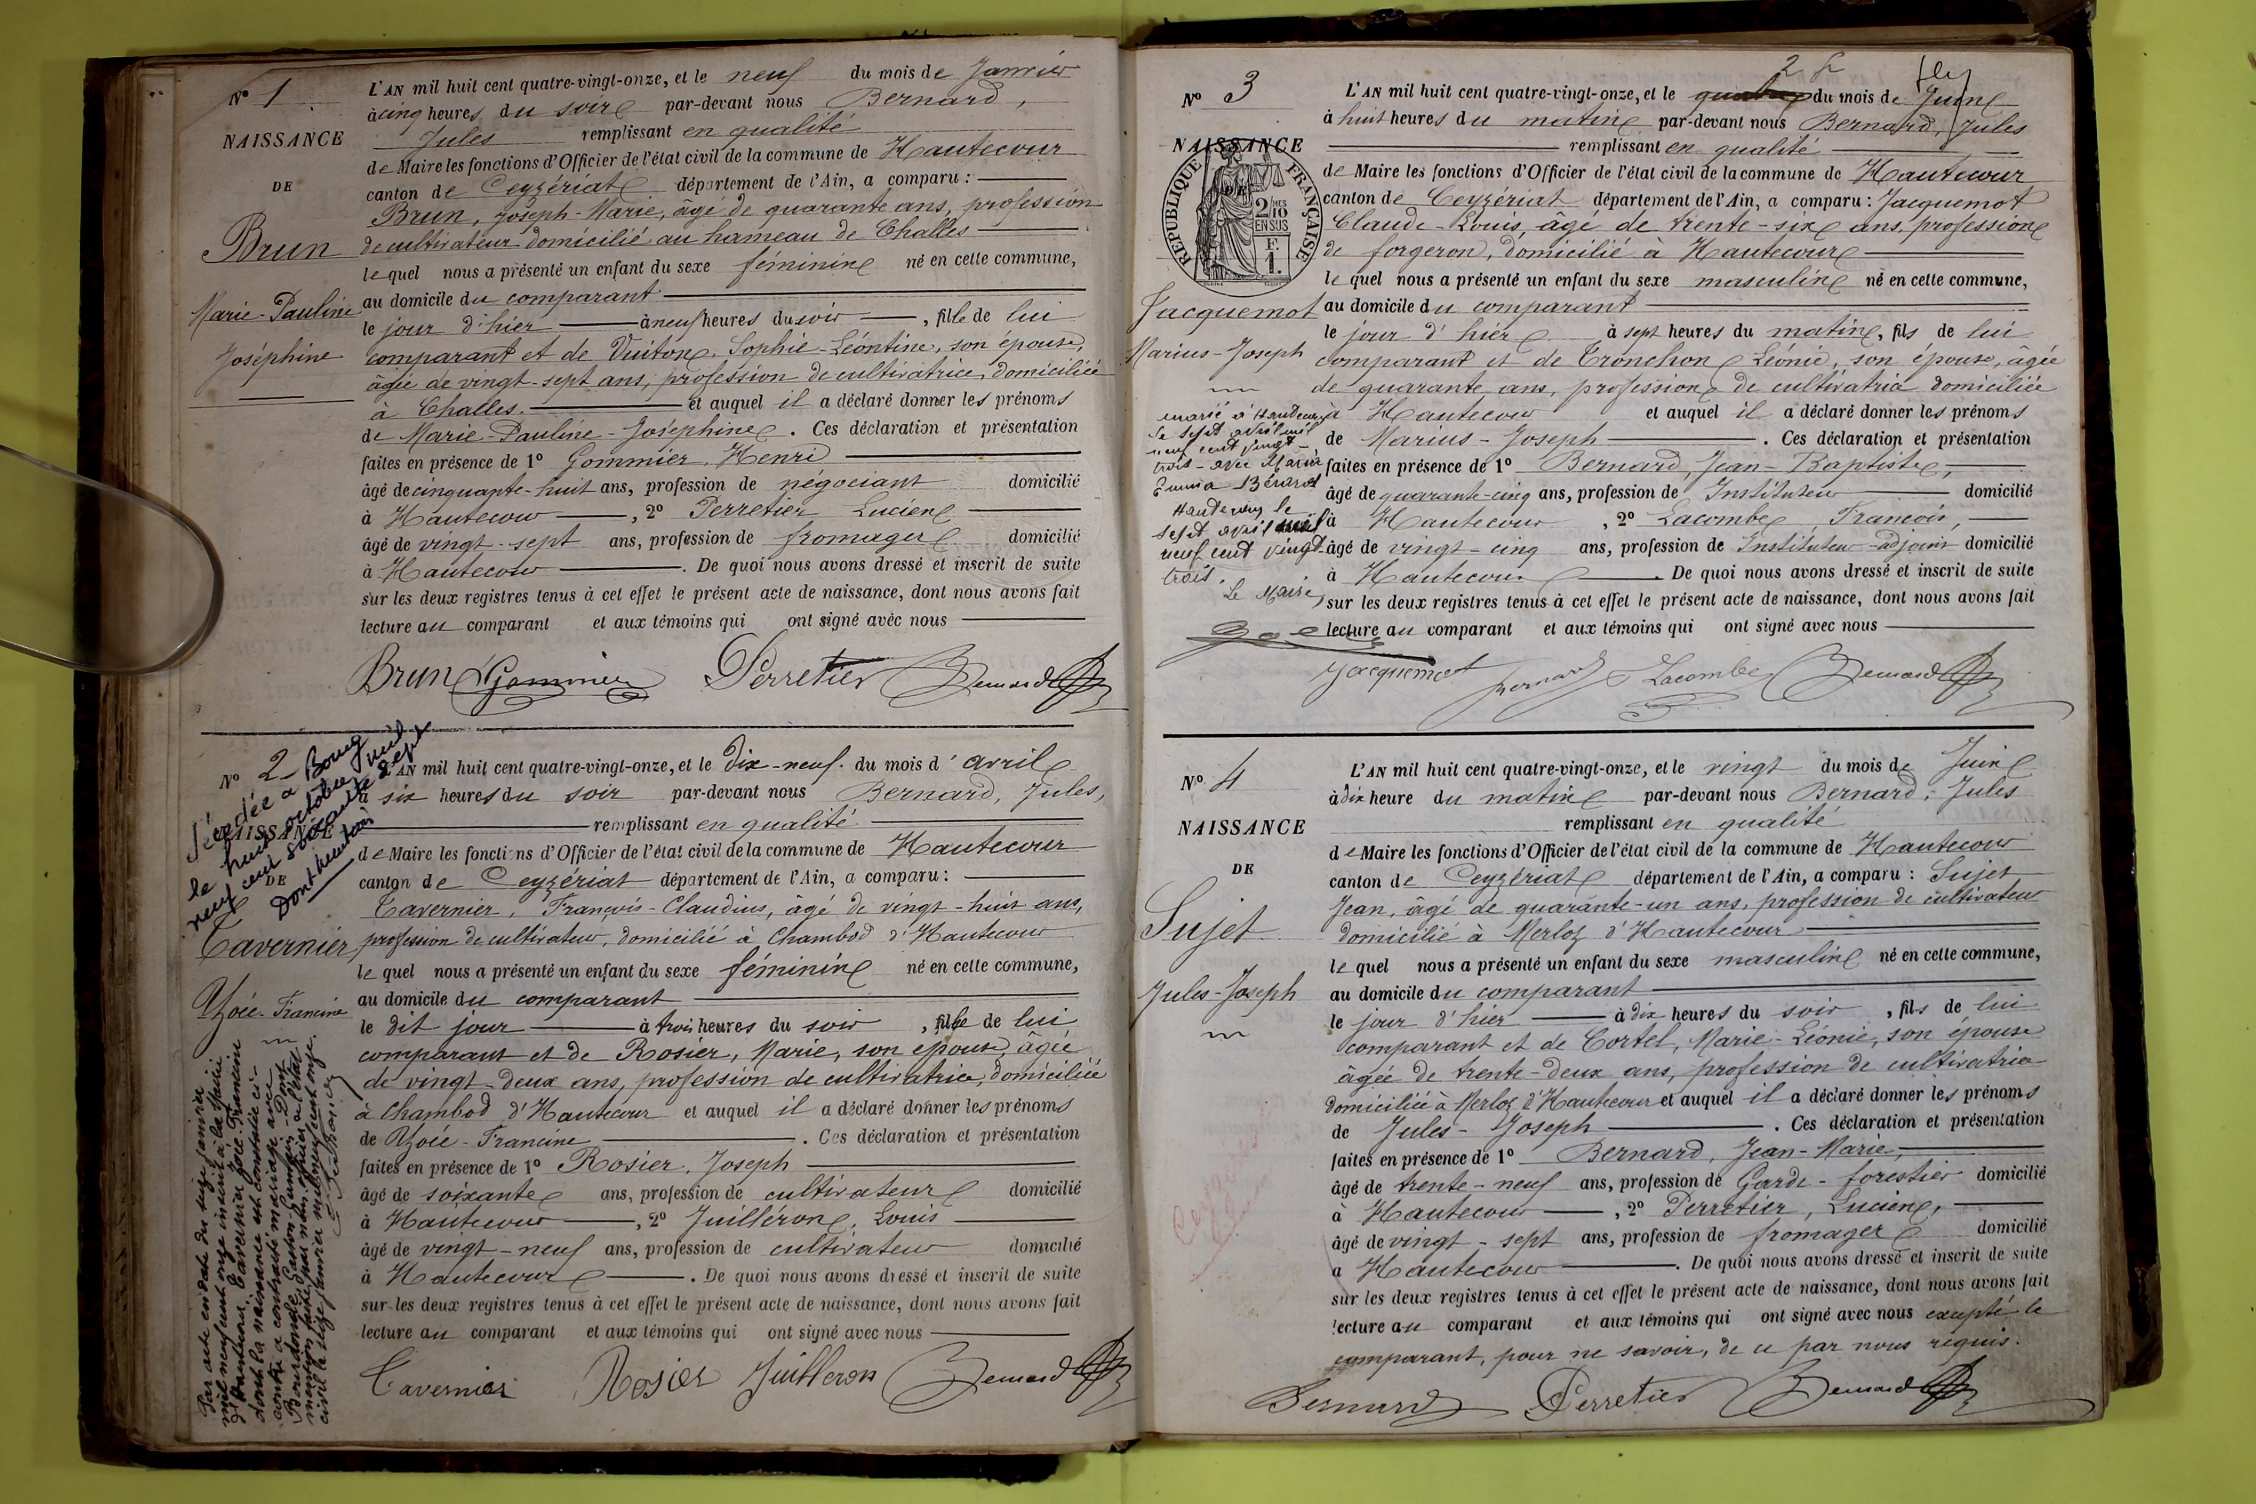 N° 1
NAISSANCE
DE
Brun
Marie-Pauline
Joséphine
L'AN mil huit cent quatre-vingt-onze, et le neuf du mois de Janvier
à cinq heures du soir par-devant nous Bernard,
Jules remplissant en qualité
de Maire les fonctions d'Officier de l'état civil de la commune de Hautecour
canton de Ceyzériat département de l'Ain, a comparu :
Brun, Joseph-Marie, âgé de quarante ans, profession
de cultivateur domicilié au hameau de Challes
lequel nous a présenté un enfant du sexe féminin né en cette commune,
au domicile du comparant
le jour d'hier à neuf heures du soir, fille de lui
comparant et de Vuiton, Sophie-Léontine, son épouse,
âgée de vingt-sept ans, profession de cultivatrice, domiciliée
à Challes. et auquel il a déclaré donner les prénoms
de Marie-Pauline-Joséphine. Ces déclaration et présentation
faites en présence de 1° Gommier, Henri
âgé de cinquante-huit ans, profession de négociant domicilié
à Hautecour, 2° Perretier Lucien
âgé de vingt-sept ans, profession de fromager domicilié
à Hautecour. De quoi nous avons dressé et inscrit de suite
sur les deux registres tenus à cet effet le présent acte de naissance, dont nous avons fait
lecture au comparant et aux témoins qui ont signé avec nous
Brun Gommier Perretier Bernard
N° 2
Décédée à Bourg
le huit octobre mil
neuf cent soixante sept
Dont mention
NAISSANCE
DE
Tavernier
Zoée-Francine
Par acte en date du seize janvier
mil neuf cent onze inscrit à la Mairie
d'Hautecour, Tavernier Zoée-Francine
dont la naissance est constatée ci-
contre a contracté mariage avec
Bourdonde Gaston - Dont
mention faite par nous, officier de l'état
civil le seize janvier mil neuf cent onze.
L'AN mil huit cent quatre-vingt-onze, et le dix-neuf du mois d'avril
à six heures du soir par-devant nous Bernard, Jules,
remplissant en qualité
de Maire les fonctions d'Officier de l'état civil de la commune de Hautecour
canton de Ceyzériat département de l'Ain, a comparu :
Tavernier, François-Claudius, âgé de vingt-huit ans,
profession de cultivateur, domicilié à Chambod d'Hautecour
lequel nous a présenté un enfant du sexe féminin né en cette commune,
au domicile du comparant
le dit jour à trois heures du soir, fille de lui
comparant et de Rosier, Marie, son épouse, âgée
de vingt-deux ans, profession de cultivatrice, domiciliée
à Chambod d'Hautecour et auquel il a déclaré donner les prénoms
de Zoée-Francine. Ces déclaration et présentation
faites en présence de 1° Rosier, Joseph
âgé de soixante ans, profession de cultivateur domicilié
à Hautecour, 2° Juilléron, Louis
âgé de vingt-neuf ans, profession de cultivateur domicilié
à Hautecour. De quoi nous avons dressé et inscrit de suite
sur les deux registres tenus à cet effet le présent acte de naissance, dont nous avons fait
lecture au comparant et aux témoins qui ont signé avec nous
Tavernier Rosier Juilleron Bernard
N° 3
NAISSANCE
DE
RÉPUBLIQUE FRANÇAISE
2/10 MES
EN SUS
F.
1.
Jacquemot
Marius-Joseph
marié à Hautecour
le sept avril mil
neuf cent vingt-
trois - avec Maria
Emma Bérard
Hautecour le
sept avril mil
neuf cent vingt-
trois.
Le Maire,
2 f
L'AN mil huit cent quatre-vingt-onze, et le quatre du mois de Juin
à huit heures du matin par-devant nous Bernard, Jules
remplissant en qualité
de Maire les fonctions d'Officier de l'état civil de la commune de Hautecour
canton de Ceyzériat département de l'Ain, a comparu : Jacquemot
Claude-Louis, âgé de trente-six ans, profession
de forgeron, domicilié à Hautecour
lequel nous a présenté un enfant du sexe masculin né en cette commune,
au domicile du comparant
le jour d'hier à sept heures du matin, fils de lui
comparant et de Tronchon Léonie, son épouse, âgée
de quarante ans, profession de cultivatrice domiciliée
à Hautecour et auquel il a déclaré donner les prénoms
de Marius-Joseph. Ces déclaration et présentation
faites en présence de 1° Bernard, Jean-Baptiste,
âgé de quarante-cinq ans, profession de Instituteur domicilié
à Hautecour, 2° Lacombe, François,
âgé de vingt-cinq ans, profession de Instituteur-adjoint domicilié
à Hautecour. De quoi nous avons dressé et inscrit de suite
sur les deux registres tenus à cet effet le présent acte de naissance, dont nous avons fait
lecture au comparant et aux témoins qui ont signé avec nous
Jacquemot Bernard Lacombe Bernard
N° 4
NAISSANCE
DE
Sujet
Jules-Joseph
L'AN mil huit cent quatre-vingt-onze, et le vingt du mois de Juin
à dix heure du matin par-devant nous Bernard, Jules
remplissant en qualité
de Maire les fonctions d'Officier de l'état civil de la commune de Hautecour
canton de Ceyzériat département de l'Ain, a comparu : Sujet
Jean, âgé de quarante-un ans, profession de cultivateur
domicilié à Merloz d'Hautecour
lequel nous a présenté un enfant du sexe masculin né en cette commune,
au domicile du comparant
le jour d'hier à dix heures du soir, fils de lui
comparant et de Cortel, Marie-Léonie, son épouse
âgée de trente-deux ans, profession de cultivatrice
domiciliée à Merloz d'Hautecour et auquel il a déclaré donner les prénoms
de Jules-Joseph. Ces déclaration et présentation
faites en présence de 1° Bernard, Jean-Marie,
âgé de trente-neuf ans, profession de Garde-forestier domicilié
à Hautecour, 2° Perretier, Lucien,
âgé de vingt-sept ans, profession de fromager domicilié
à Hautecour. De quoi nous avons dressé et inscrit de suite
sur les deux registres tenus à cet effet le présent acte de naissance, dont nous avons fait
lecture au comparant et aux témoins qui ont signé avec nous excepté le
comparant, pour ne savoir, de ce par nous requis.
Bernard Perretier Bernard